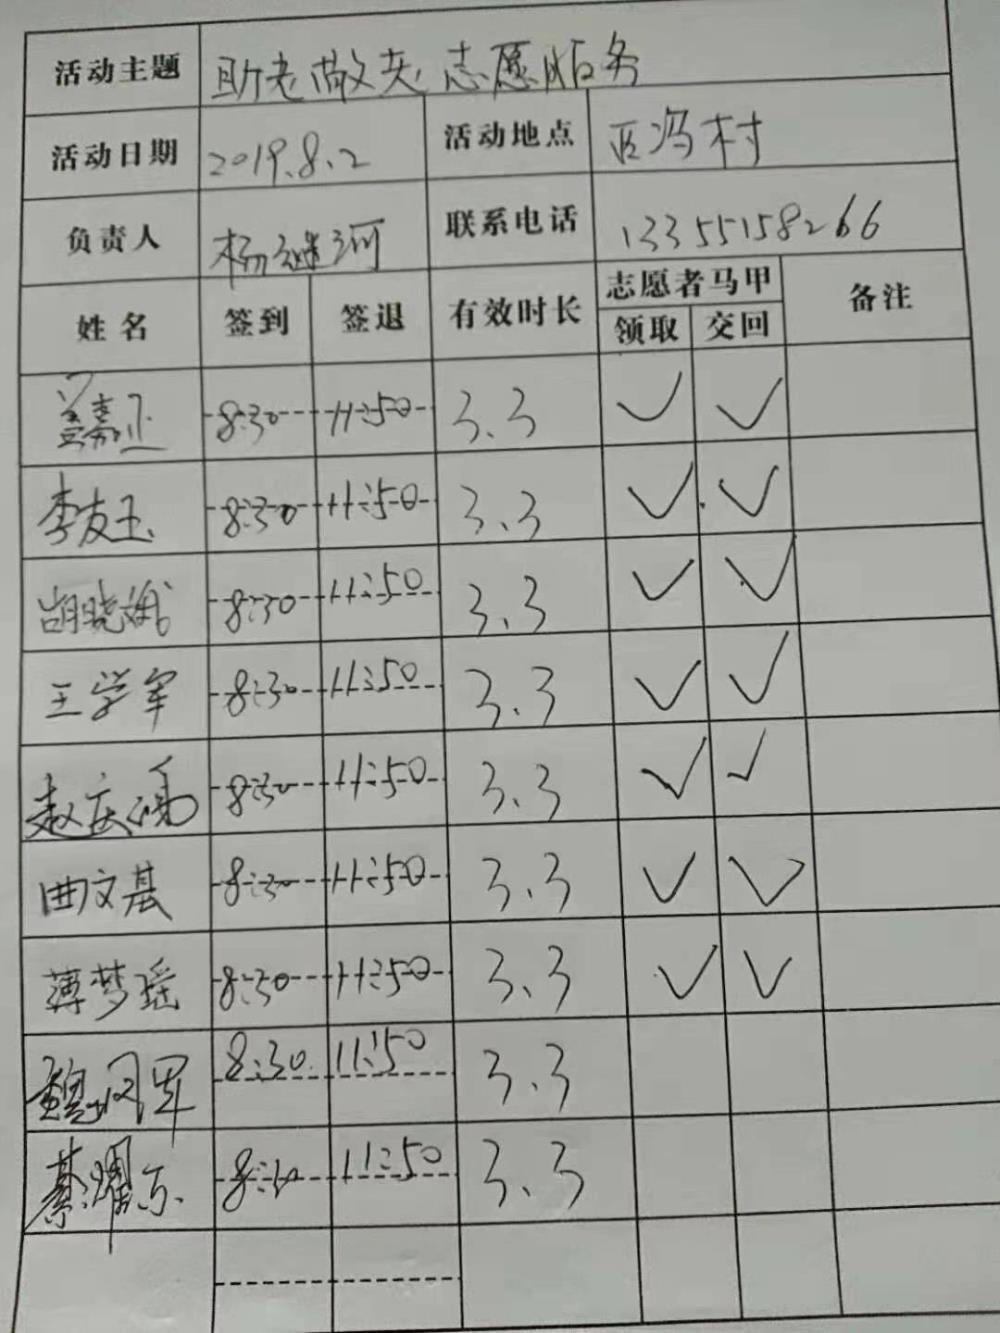 活动主题 助老敬老志愿服务
活动日期 2019.8.2 活动地点 西冯村
负责人 杨继河 联系电话 13355158266
姓名 签到 签退 有效时长 志愿者马甲 备注
领取 交回
8:30 11:50 3.3 ✓ ✓
李友玉 8:30 11:50 3.3 ✓ ✓
胡晓娥 8:30 11:50 3.3 ✓ ✓
王学军 8:30 11:50 3.3 ✓ ✓
8:30 11:50 3.3 ✓ ✓
曲文基 8:30 11:50 3.3 ✓ ✓
薄梦瑶 8:30 11:50 3.3 ✓ ✓
8:30 11:50 3.3
8:30 11:50 3.3